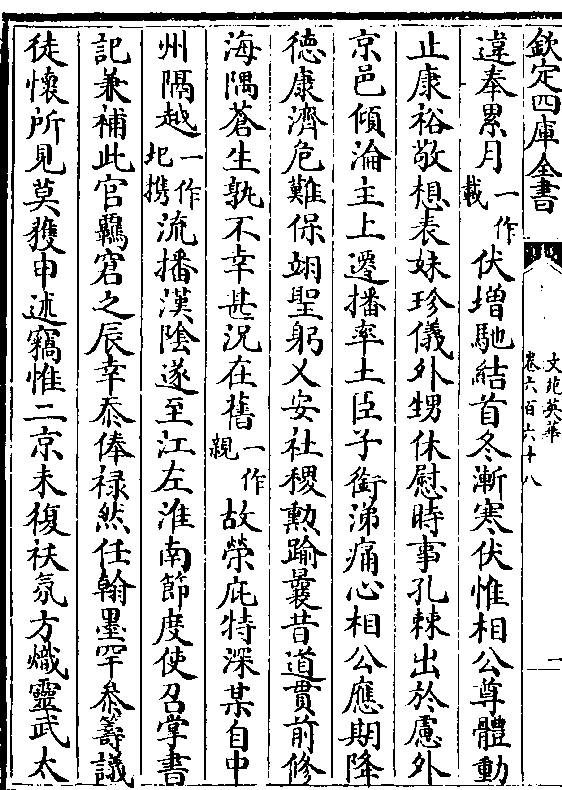 欽定四庫全書
文苑英華
卷六百六十八
一
違奉累月一作載伏增馳結首冬漸寒伏惟相公尊體動
止康裕敬想表妹珍儀外甥休慰時事孔棘出於慮外
京邑傾淪主上遷播率土臣子銜涕痛心相公應期降
德康濟危難保翊聖躬乂安社稷勲踰曩昔道貫前修
海隅蒼生孰不幸甚況在舊一作親故榮庇特深某自中
州隔越一作圯携流播漢隂遂至江左淮南節度使召掌書
記兼補此官羈窘之辰幸忝俸禄然任翰墨罕叅籌議
徒懐所見莫獲申述竊惟二京未復祅氛方熾靈武太